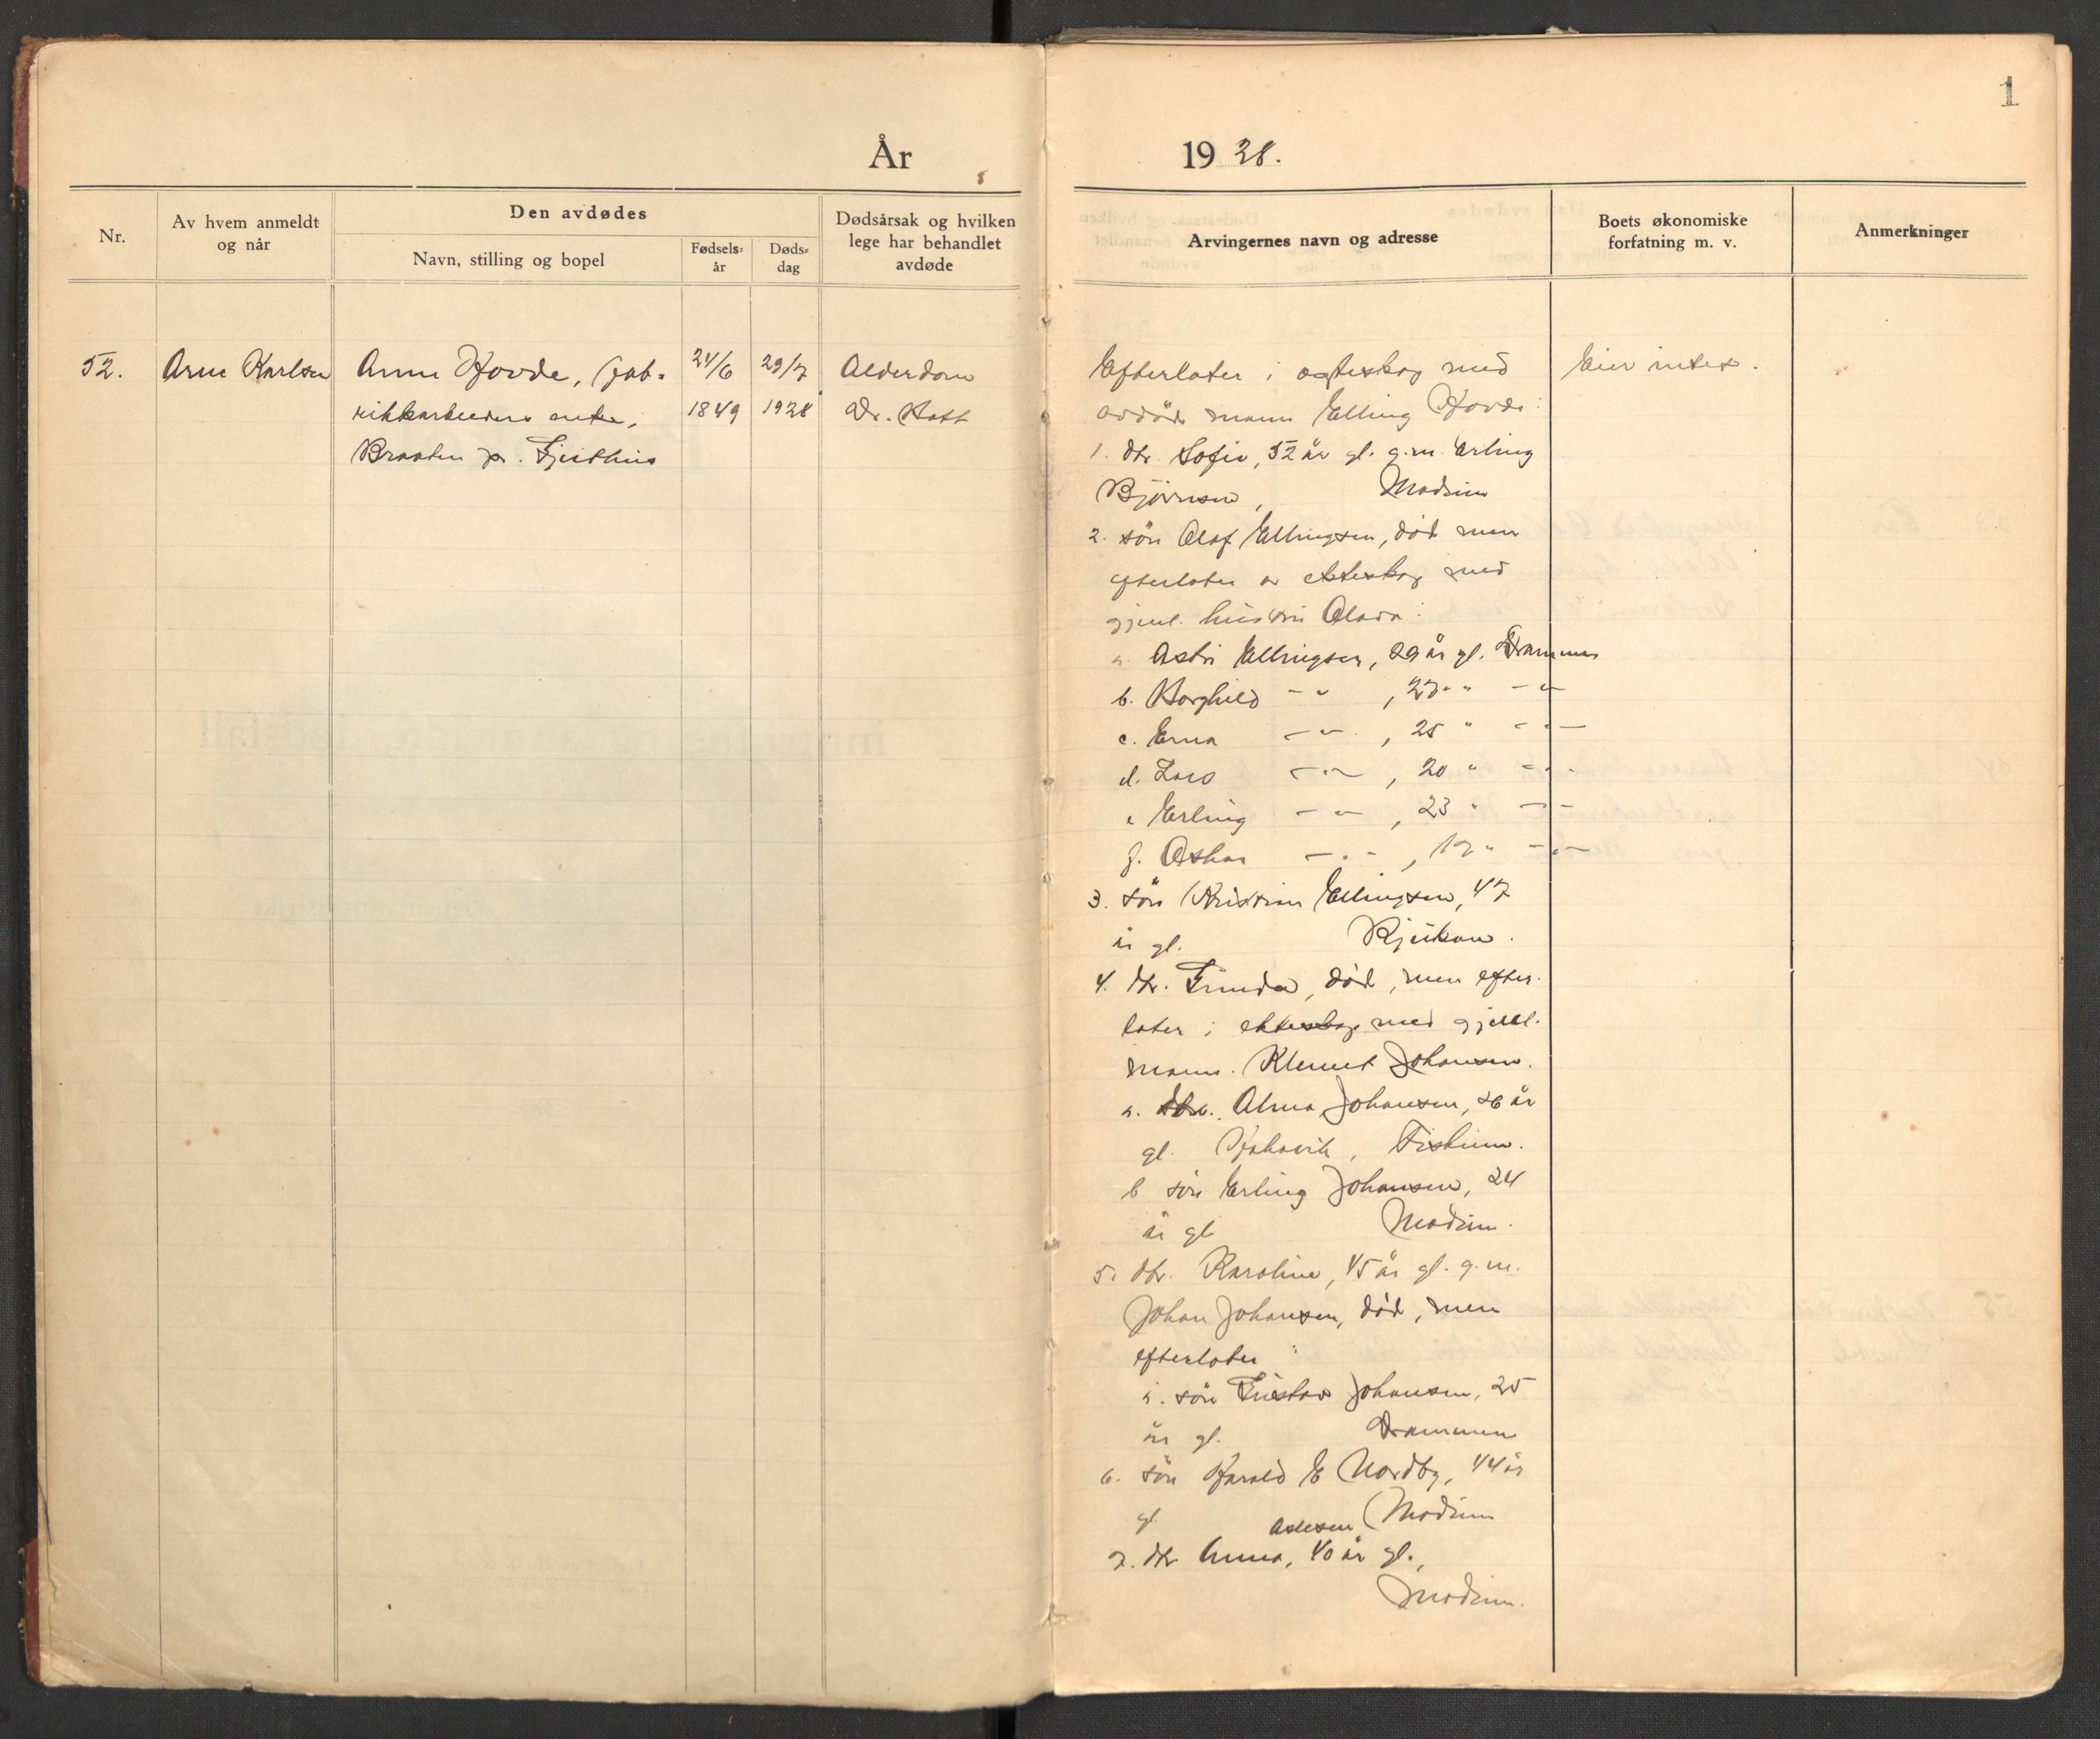 1
År 1928.
Nr.
Av hvem anmeldt
og når
Den avdødes
Navn, stilling og bopel
Fødsels-
år
Døds-
dag
Dødsårsak og hvilken
lege har behandlet
avdøde
Arvingernes navn og adresse
Boets økonomiske
forfatning m. v.
Anmerkninger
52.
Arne Karlsen
Anne Hovde, fab-
rikkarbeiders enke,
Braaten pr. Geithus
24/6
1849
29/7
1928
Alderdom
Dr. Natt
Efterlater i egteskap med
avdøde mann Elling Hovde:
1. dtr. Sofie, 52 år gl. g.m. Erling
Bjørnsen, Modum
2. søn Olaf Ellingsen, død men
efterlater av ekteskap med
gjenl. hustru Olava:
a. Astri Ellingsen, 29 år gl. Drammen
b. Borghild -"- , 27 " -"-
c. Erna -"- , 25 " -"-
d. -"- , 20 " -"-
e Erling -"- , 23 " -"-
f. Oskar -"- , 17 " -"-
3. søn Kristian Ellingsen, 47
år gl. Rjukan.
4. dtr. Gunda, død, men efter-
later i ekteskap med gjenl.
mann. Klemet Johansen.
a. dtr. Alma Johansen, 26 år
gl. Fiskum.
b søn Erling Johansen, 24
år gl. Modum.
5. dtr. Karoline, 45 år gl. g.m.
Johan Johansen, død, men
efterlater:
a. søn Gustav Johansen, 25
år gl. Drammen
6. søn Harald E Nordby, 44 år
gl. Modum
7. dtr Anna, 40 år gl.,
Modum.
Eier intet.